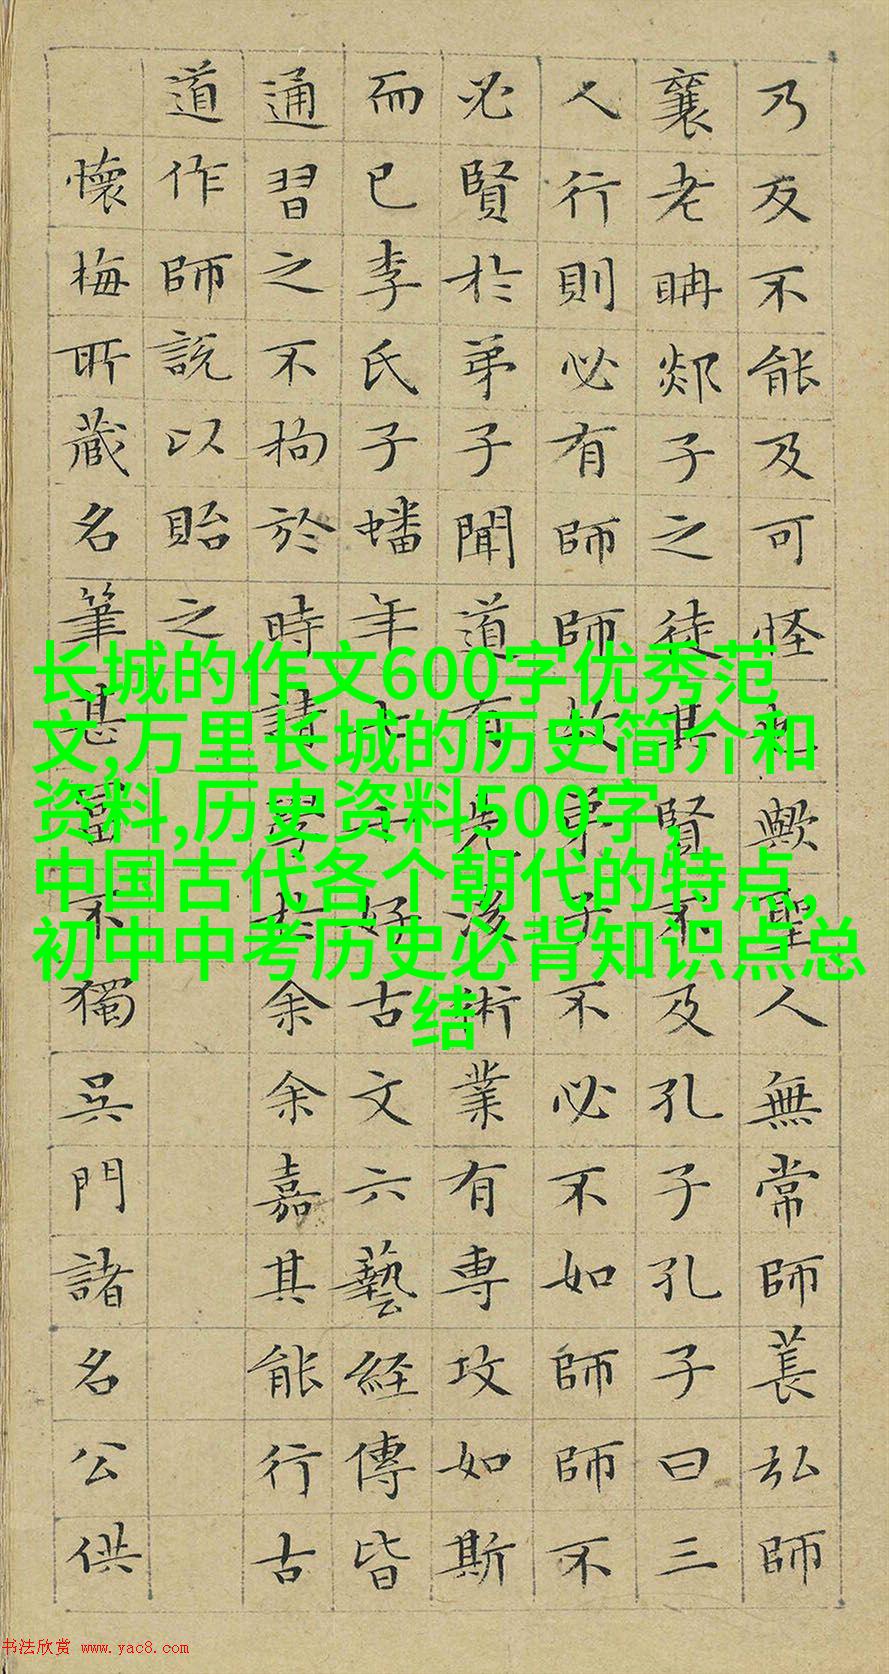 乃反不能及可怪也歟聖人無常師萇弘師
襄老聃郯子之徒其賢不及孔子孔子曰三
人行則必有師師故弟子不必不如師師不
必賢於弟子聞道有先後術業有專攻如斯
而已李氏子蟠年十七好古文六藝經傳皆
通習之不拘於時請學於余余嘉其能行古
道作師說以貽之
懷梅所藏名筆甚富不獨吳門諸名公供
长城的作文600字优秀范
文,万里长城的历史简介和
资料,历史资料500字,
中国古代各个朝代的特点,
初中中考历史必背知识点总
结
书法欣赏 www.yac8.com